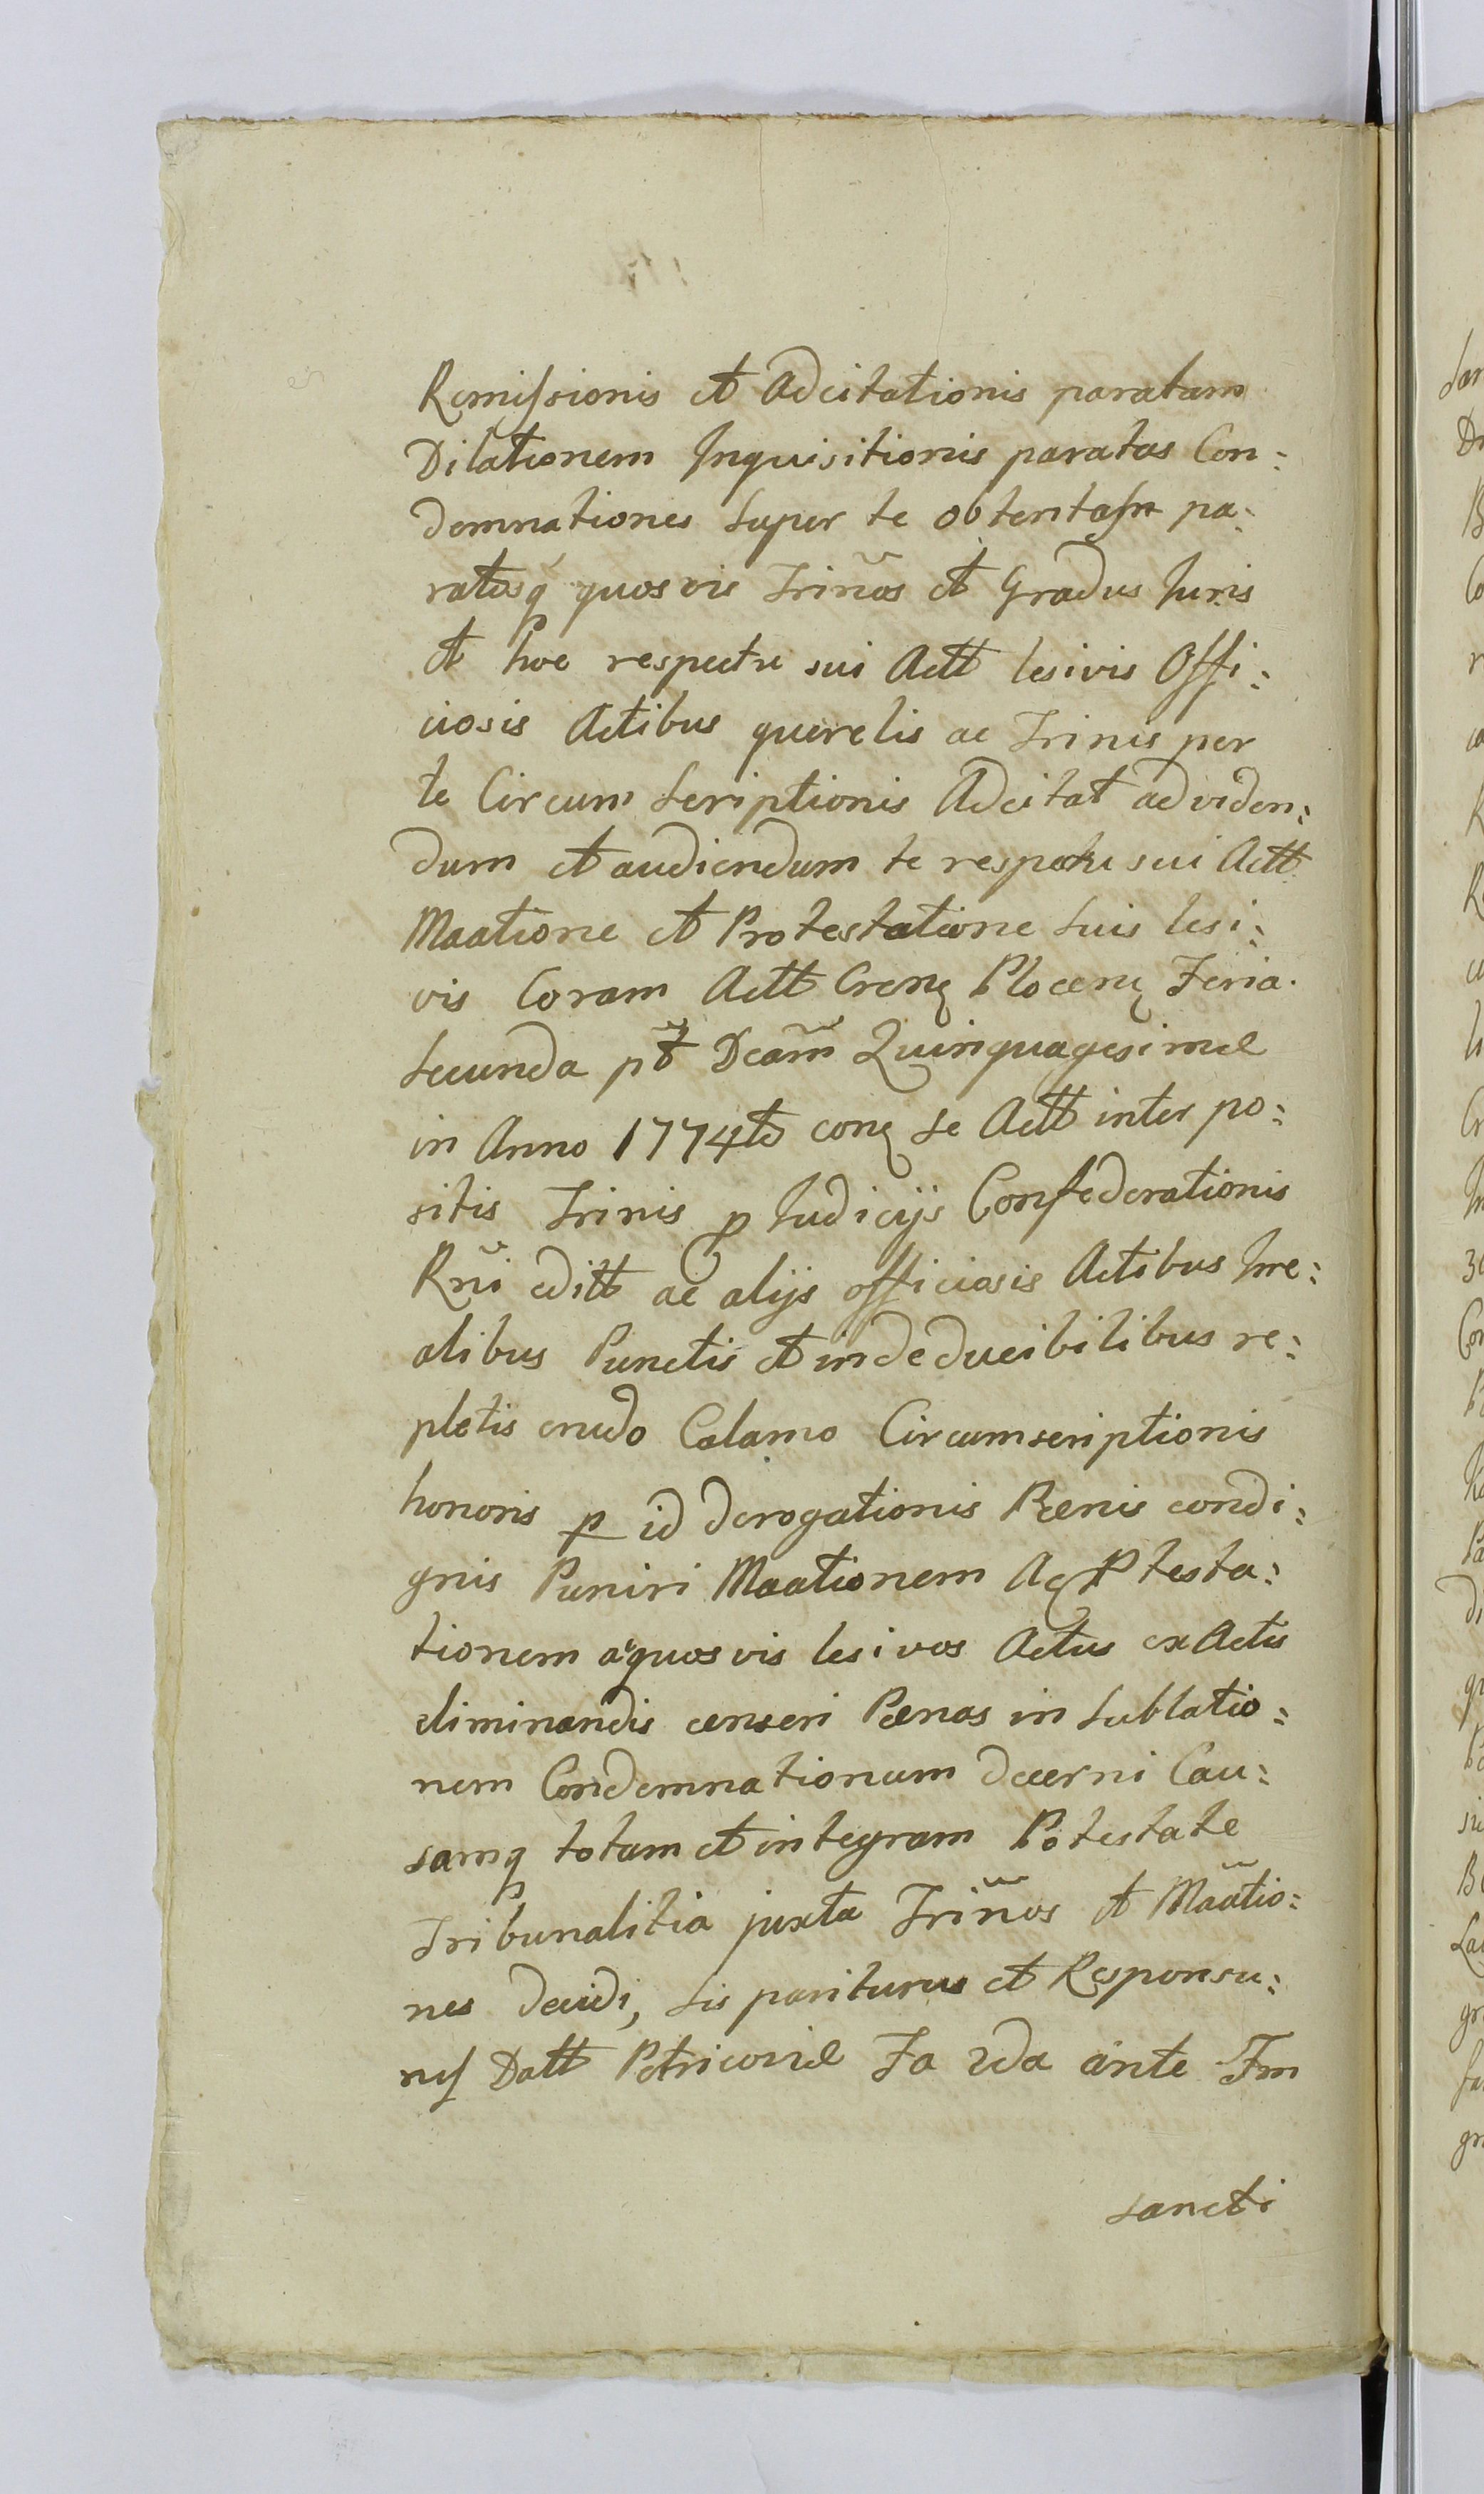 Remissionis et Adcitationis paratam
Dilationem Inquisitionis paratas Con:
demnationes super te obtentas pa:
ratosq quosvis Trin̄os et Gradus Iuris
et hoc respectu sui Actt lesivis Offi:
ciosis Actibus querelis ac Trinis per
te Circum Scriptionis Adcitat ad viden:
dum et audiendum te respectu sui Actt
Maatione et Protestatione suis lesi:
vis Coram Actt Cren Plocen Feria
secunda pt Dcam̄ Quinquagesimæ
in Anno 1774to con se Actt inter po:
sitis Trinis p Iudicijs Confederationis
Rni editt ac alijs officiosis Actibus Irre:
alibus Punctis et indeducibilibus re:
pletis crudo Calamo Circumscriptionis
honoris p id derogationis Pœnis condi:
gnis Puniri Maationem Acq Ptesta:
tionem aquosvis lesivos Actus ex Actis
eliminandis censeri Pœnas in sublatio:
nem Condemnationum decerni Cau:
samq totam et integram Potestate
Tribunalitia juxta Trin̄os et Maatio:
nes decidi, sis pariturus et Responsu:
rus Datt Petricoviæ Fa 2da ante Fm
sancti